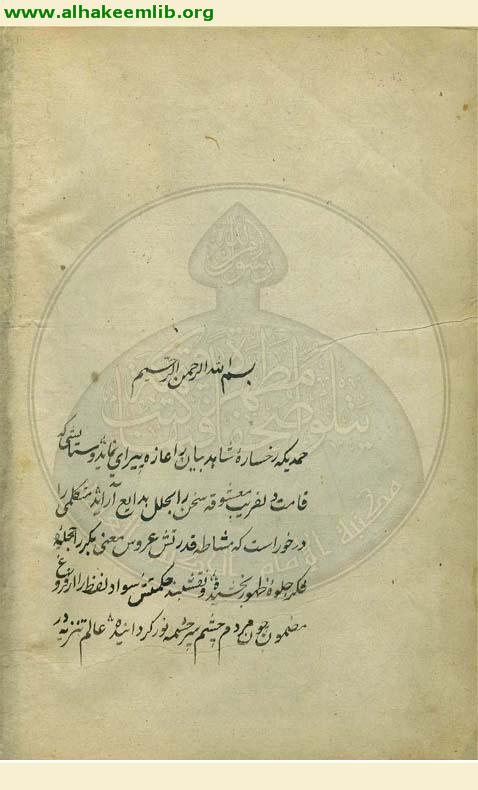 www.alhakeemlib.org
بسم الله الرحمن الرحیم
حمدیکه رخسارهٔ شاهد بیان را غازه پیرای نماید و ستایشی که
قامت دلفریب معشوقه سخن را بحلل بدایع آراید متکلمی را
در خور است که مشاطه قدرتش عروس معنی بکر را بحجله
فکر جلوهٔ ظهور بخشیده و نقشبند حکمتش سواد لفظ را از فروغ
مضمون چون مردم چشم سرچشمه نور گردانیده عالم تنزیه در